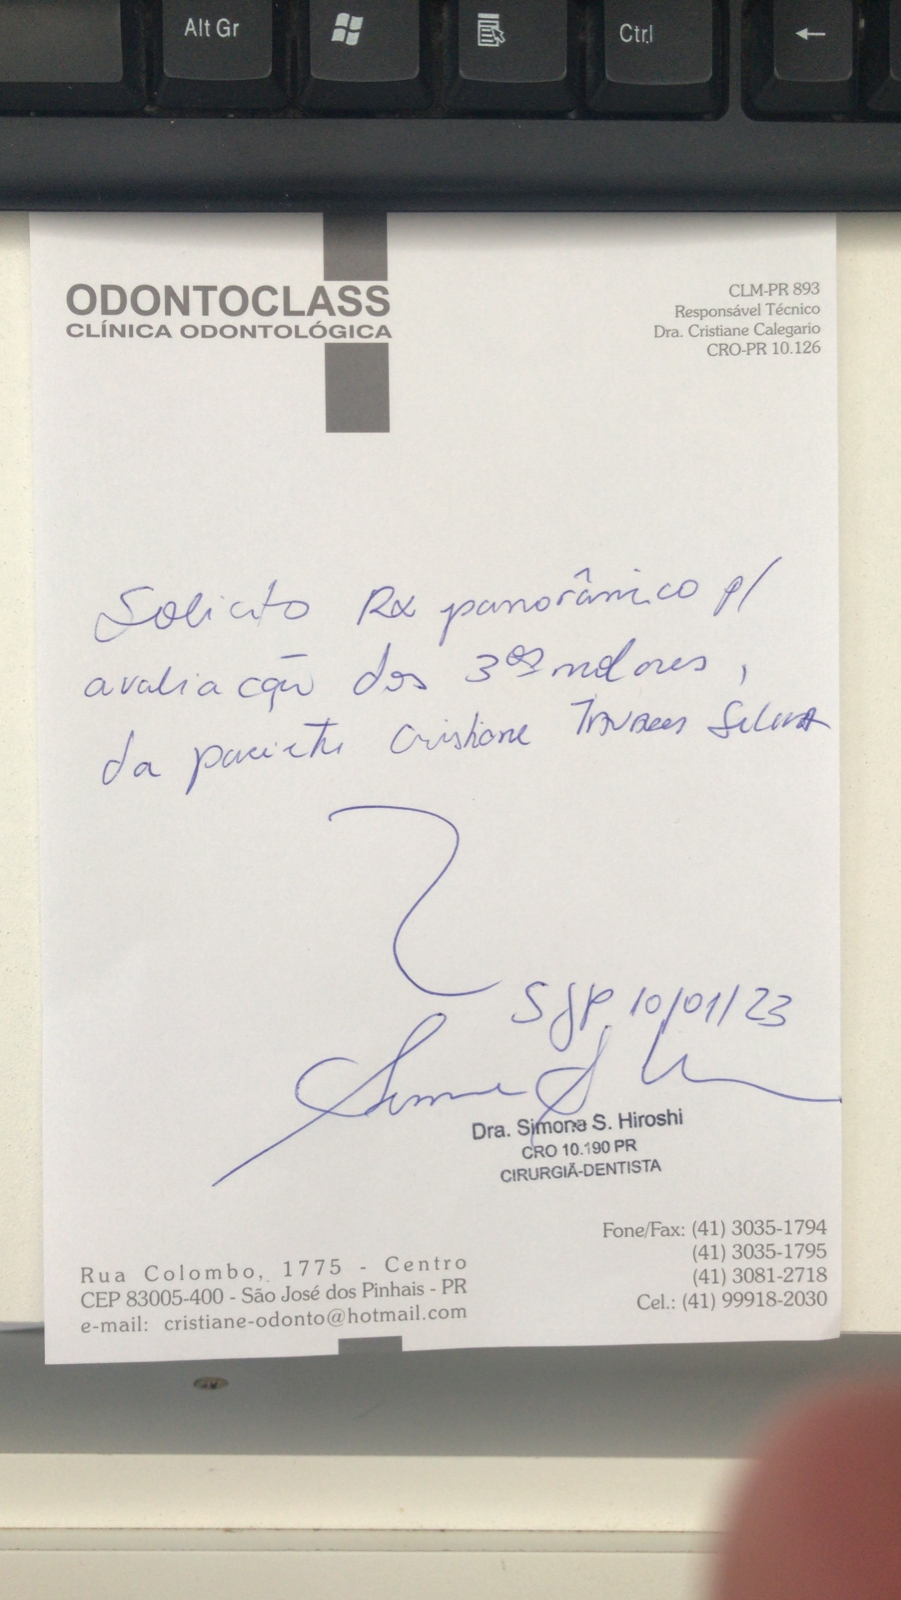 Alt Gr
Ctrl
←
ODONTOCLASS
CLÍNICA ODONTOLÓGICA
CLM-PR 893
Responsável Técnico
Dra. Cristiane Calegario
CRO-PR 10.126
Solicito Rx panorâmico p/
avaliação dos 3ºs molores,
da paciente Cristiane Tavares Silva
SJP, 10/01/23
Dra. Simone S. Hiroshi
CRO 10.190 PR
CIRURGIÃ-DENTISTA
Rua Colombo, 1775 - Centro
CEP 83005-400 - São José dos Pinhais - PR
e-mail: cristiane-odonto@hotmail.com
Fone/Fax: (41) 3035-1794
(41) 3035-1795
(41) 3081-2718
Cel.: (41) 99918-2030